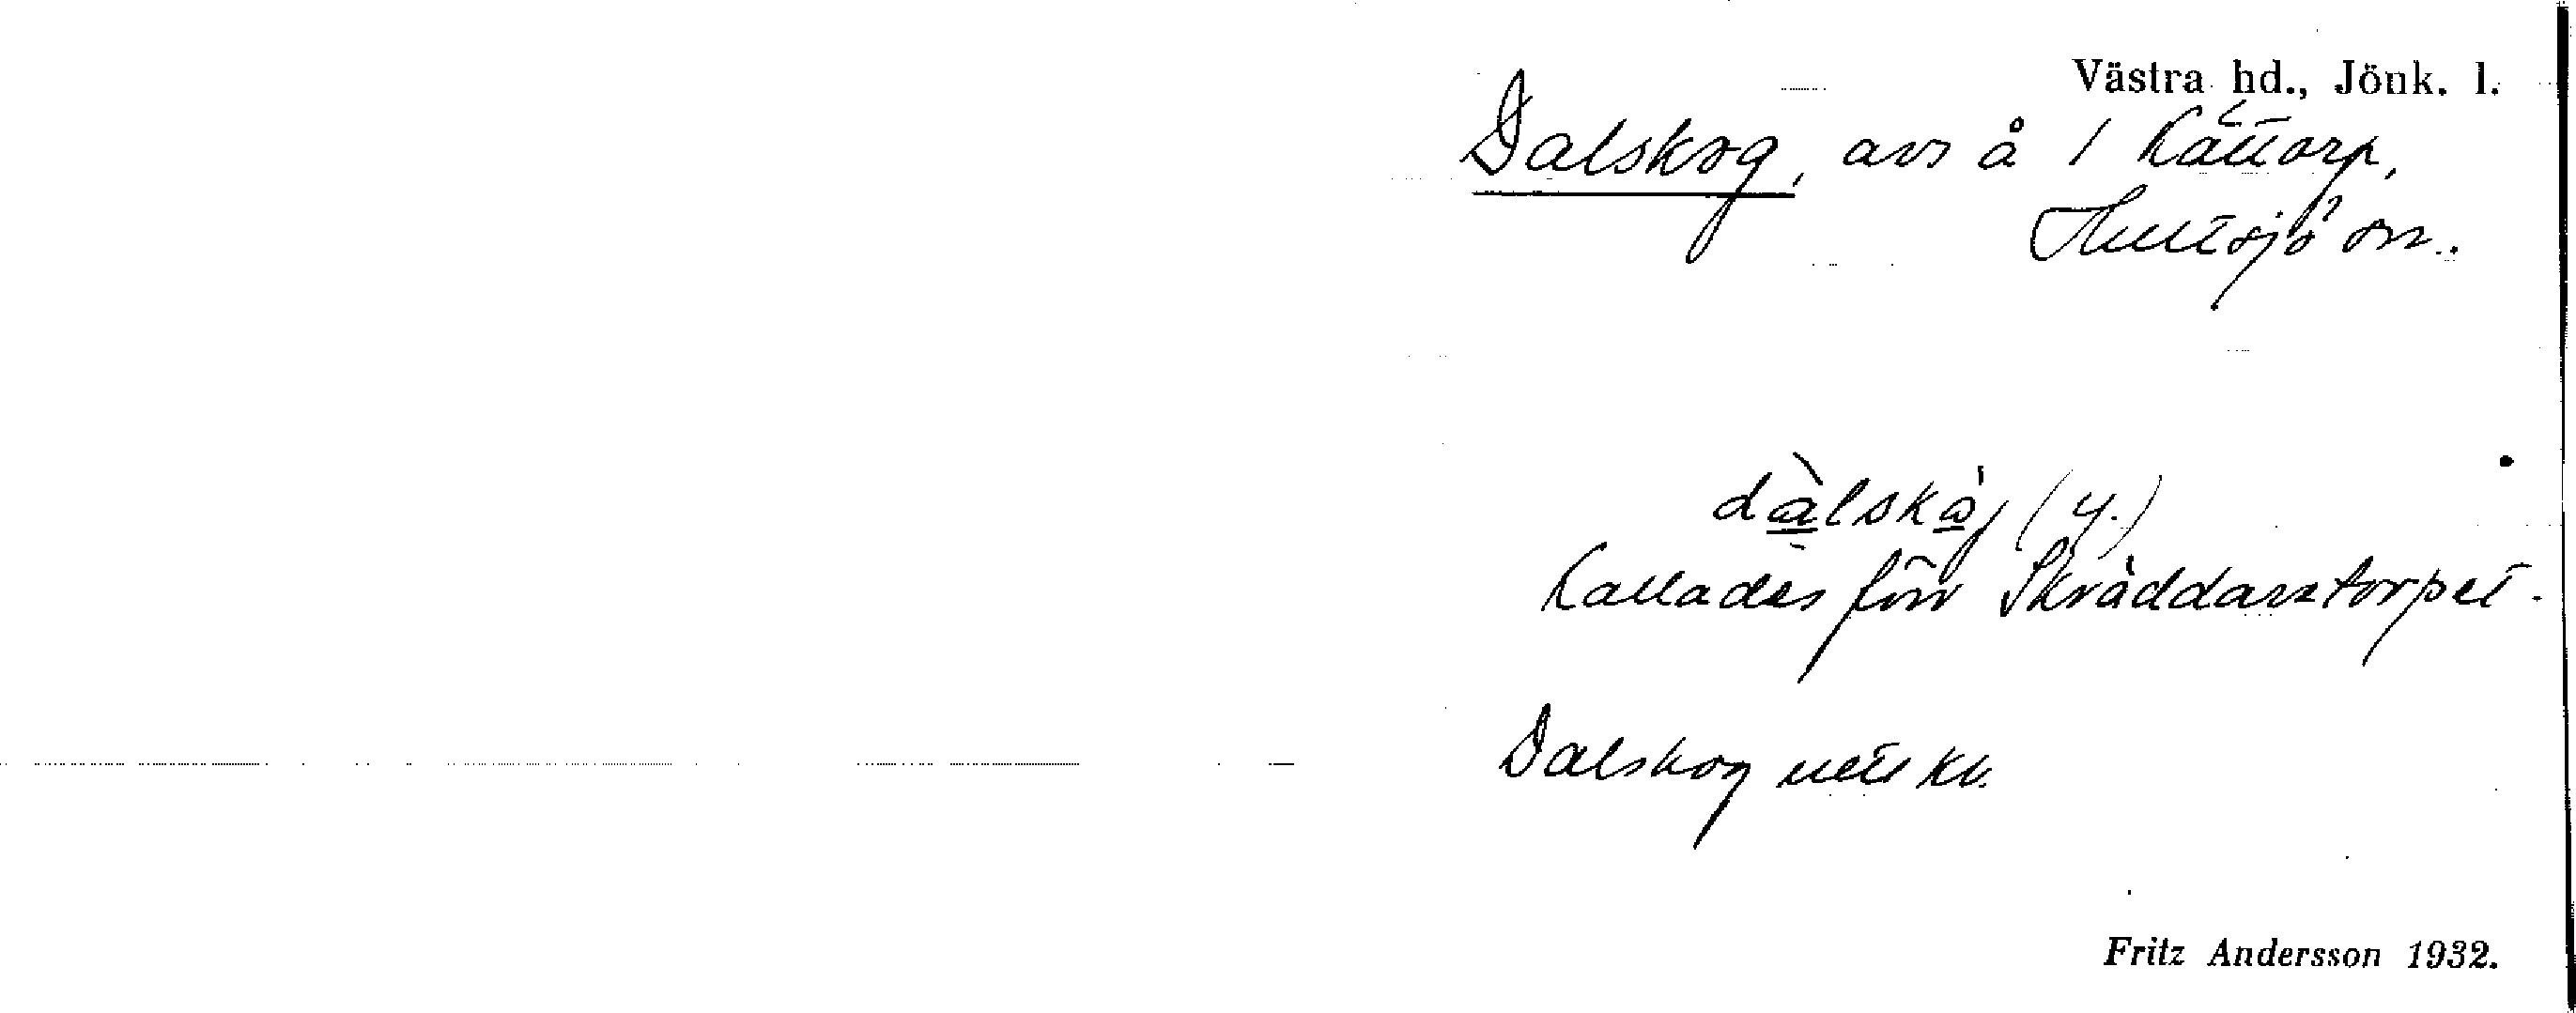 Västra hd., Jönk. l.
Dalskog, avs å 1 Kättorp,
Hultsjö sn.
dàlskåg (y.)
Kallades förr Skräddaretorpet.
Dalskog uttskv.
Fritz Andersson 1932.